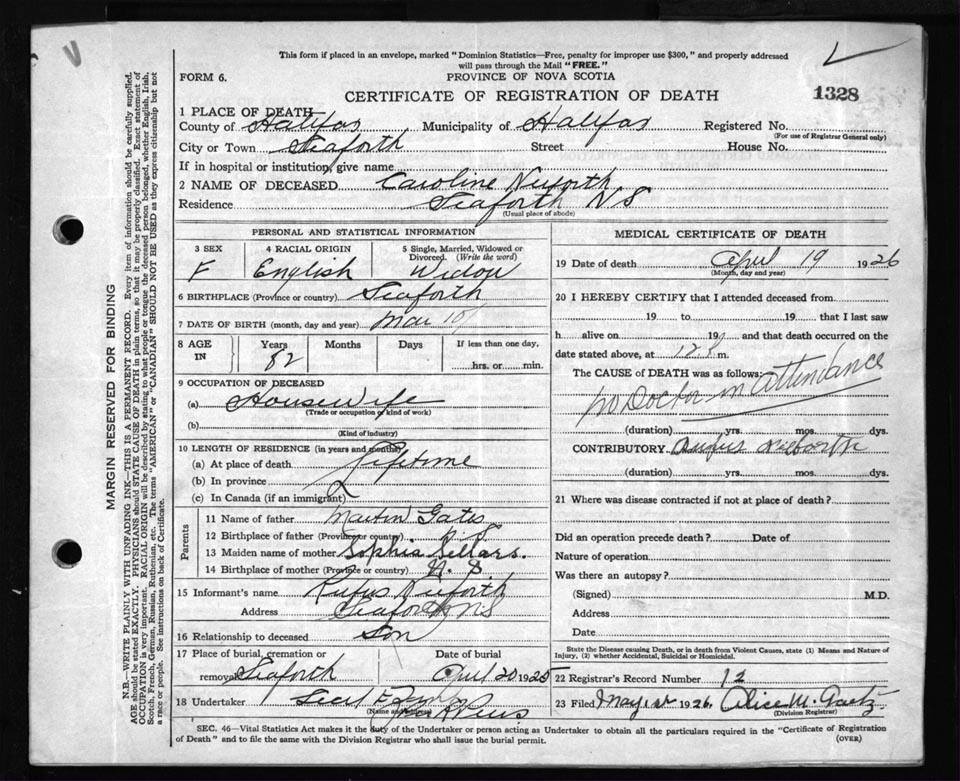 This form if placed in an envelope, marked "Dominion Statistics—Free, penalty for improper use $300," and properly addressed
will pass through the Mail "FREE."
FORM 6.
PROVINCE OF NOVA SCOTIA
CERTIFICATE OF REGISTRATION OF DEATH
1328
1 PLACE OF DEATH
County of Halifax Municipality of Halifax Registered No.
(For use of Registrar General only)
City or Town Seaforth Street House No.
If in hospital or institution, give name
2 NAME OF DECEASED Caroline Nieforth
Residence Seaforth NS
(Usual place of abode)
PERSONAL AND STATISTICAL INFORMATION
3 SEX 4 RACIAL ORIGIN 5 Single, Married, Widowed or Divorced. (Write the word)
F English Widow
6 BIRTHPLACE (Province or country) Seaforth
7 DATE OF BIRTH (month, day and year) Mar 10
8 AGE IN Years Months Days If less than one day,
82 hrs. or min.
9 OCCUPATION OF DECEASED
(a) Housewife
(Trade or occupation or kind of work)
(b)
(Kind of industry)
10 LENGTH OF RESIDENCE (in years and months)
(a) At place of death Lifetime
(b) In province
(c) In Canada (if an immigrant)
Parents
11 Name of father Martin Gates
12 Birthplace of father (Province or country) N.S.
13 Maiden name of mother Sophia Sellars.
14 Birthplace of mother (Province or country) N. S
15 Informant's name Rufus Nieforth
Address Seaforth NS
16 Relationship to deceased Son
17 Place of burial, cremation or removal Seaforth Date of burial April 20 1925
18 Undertaker
(Name and address)
MEDICAL CERTIFICATE OF DEATH
19 Date of death April 19 1926
(Month, day and year)
20 I HEREBY CERTIFY that I attended deceased from
19 to 19 that I last saw
h alive on 19 and that death occurred on the
date stated above, at 12 m.
The CAUSE of DEATH was as follows:
no Doctor in attendance
(duration) yrs. mos. dys.
CONTRIBUTORY Rufus
(duration) yrs. mos. dys.
21 Where was disease contracted if not at place of death?
Did an operation precede death? Date of
Nature of operation
Was there an autopsy?
(Signed) M.D.
Address
Date
State the Disease causing Death, or in death from Violent Causes, state (1) Means and Nature of Injury, (2) whether Accidental, Suicidal or Homicidal.
22 Registrar's Record Number 12
23 Filed May 1st 1926 Alice M. Gaetz
(Division Registrar)
SEC. 46—Vital Statistics Act makes it the duty of the Undertaker or person acting as Undertaker to obtain all the particulars required in the "Certificate of Registration
of Death" and to file the same with the Division Registrar who shall issue the burial permit.
(OVER)
MARGIN RESERVED FOR BINDING
N.B.—WRITE PLAINLY WITH UNFADING INK—THIS IS A PERMANENT RECORD. Every item of information should be carefully supplied.
AGE should be stated EXACTLY. PHYSICIANS should STATE CAUSE OF DEATH in plain terms, so that it may be properly classified. Exact statement of
OCCUPATION is very important. RACIAL ORIGIN will be described by stating to what people or tongue the deceased person belonged, whether English, Irish,
Scotch, French, German, Russian, Ruthenian, etc. The terms "AMERICAN" or "CANADIAN" SHOULD NOT BE USED as they express citizenship but not
a race or people. See instructions on back of Certificate.